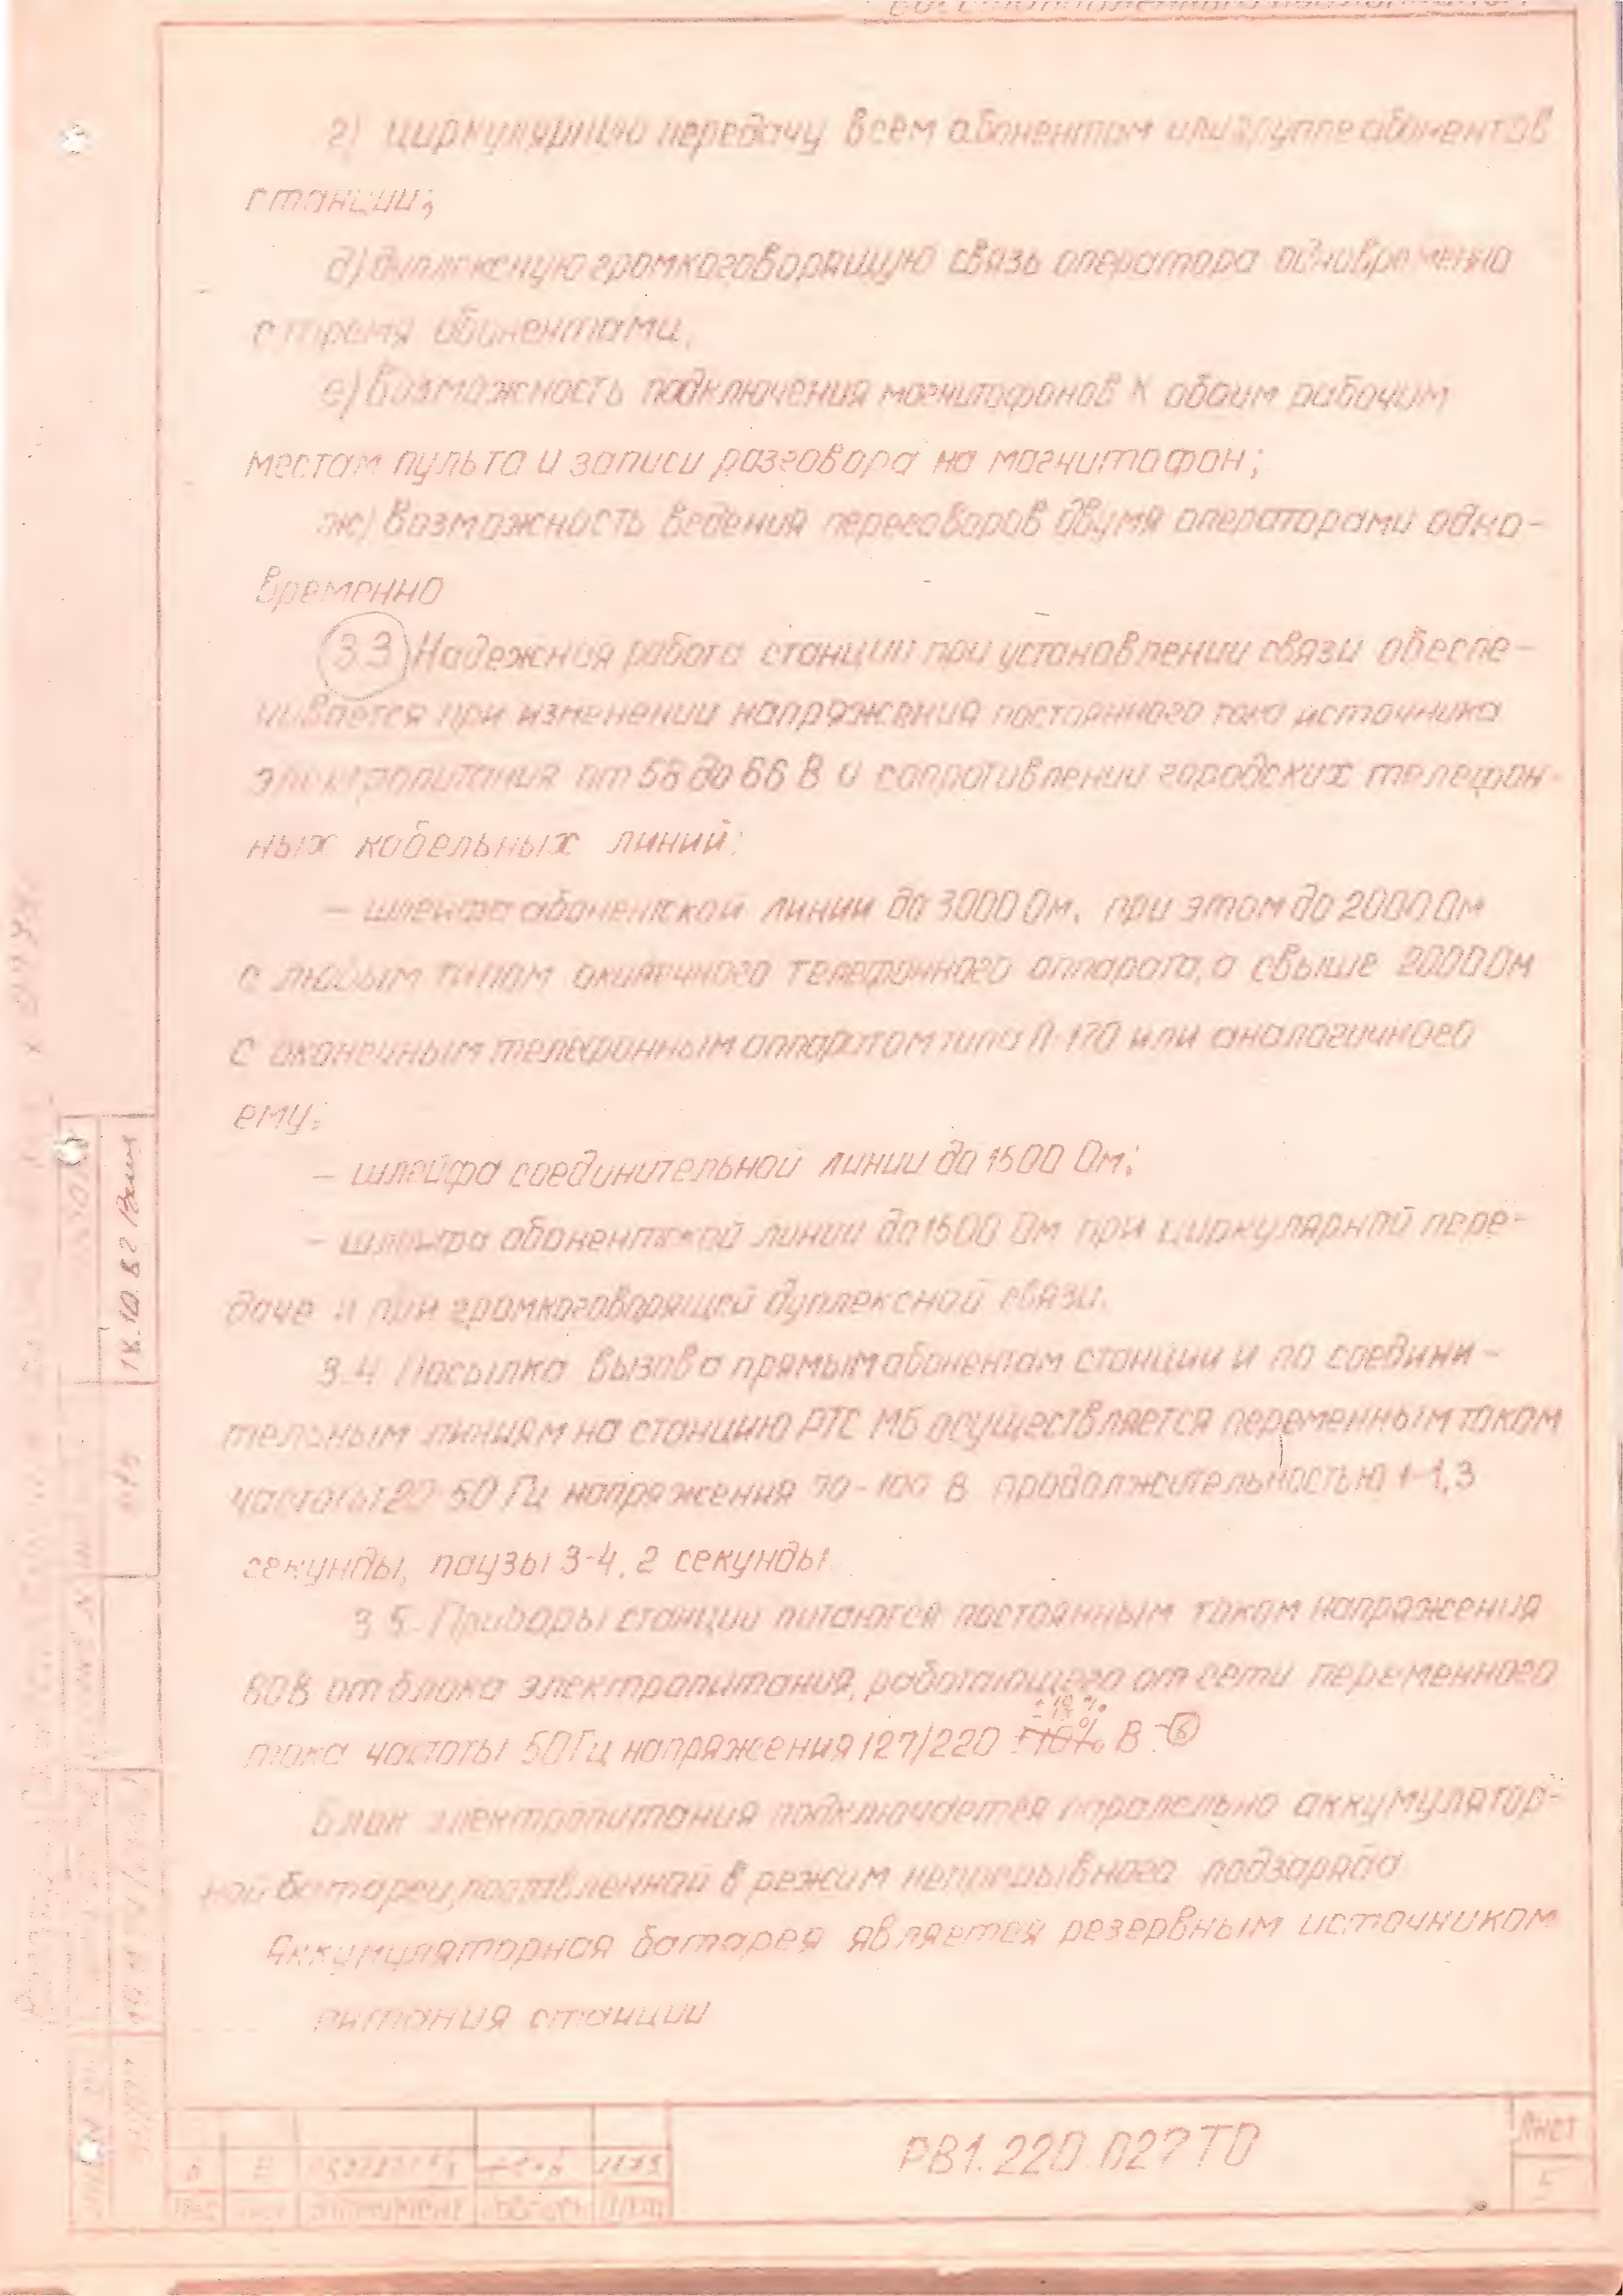 г) циркулярную передачу всем абонентам или группе абонентов
станции;
д) дуплексную громкоговорящую связь оператора одновременно
с тремя абонентами,
е) возможность подключения магнитофонов к обоим рабочим
местам пульта и записи разговора на магнитофон;
ж) возможность ведения переговоров двумя операторами одно-
временно
3.3 Надежная работа станции при установлении связи обеспе-
чивается при изменении напряжения постоянного тока источника
электропитания от 58 до 66 В и сопротивлении городских телефон-
ных кабельных линий:
– шлейфа абонентской линии до 3000 Ом, при этом до 2000 Ом
с любым типом оконечного телефонного аппарата, а свыше 2000 Ом
с оконечным телефонным аппаратом типа П-170 или аналогичного
ему;
– шлейфа соединительной линии до 1500 Ом;
– шлейфа абонентской линии до 1500 Ом при циркулярной пере-
даче и при громкоговорящей дуплексной связи.
3.4 Посылка вызова прямым абонентам станции и по соедини-
тельным линиям на станцию РТС МБ осуществляется переменным током
частоты 50 Гц напряжения 100 В продолжительностью 1-1,3
секунды, паузы 3-4,2 секунды
3.5. Приборы станции питаются постоянным током напряжения
60В от блока электропитания, работающего от сети переменного
тока частоты 50Гц напряжения 127/220 ±10% В
Блок электропитания подключается паралельно аккумулятор-
ной батареи, поставленной в режим непрерывного подзаряда
Аккумуляторная батарея является резервным источником
питания станции
18.10.82
РВ1.220.027ТО
Лист